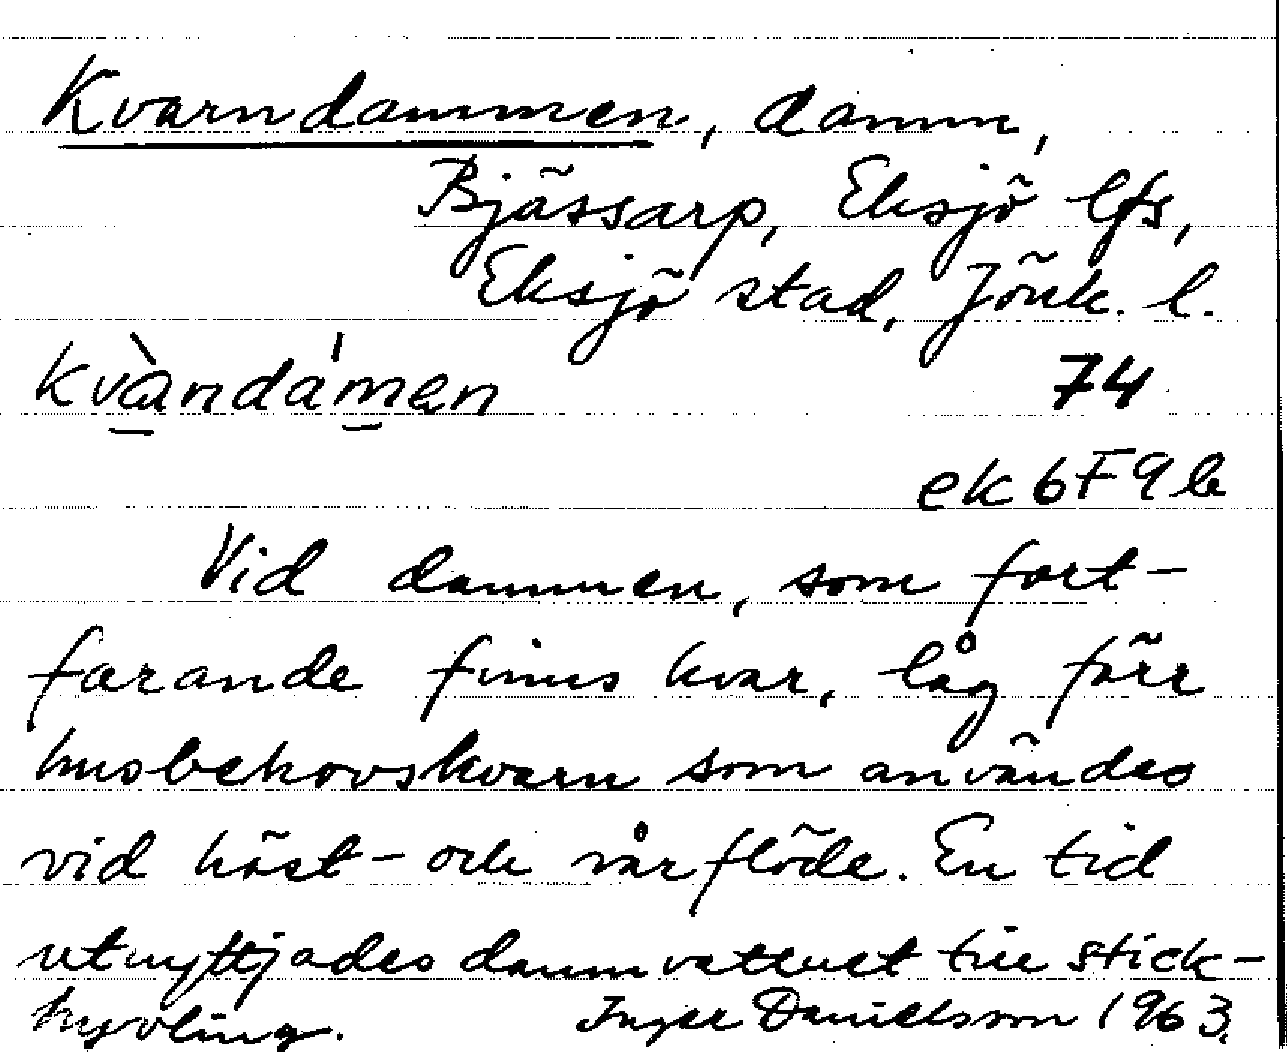 Kvarndammen, damm,
Bjässarp, Eksjö lfs,
Eksjö stad, Jönk. l.
kvàndámen 74
ek 6F9b
Vid dammen, som fort-
farande finns kvar, låg förr
husbehovskvarn som användes
vid höst- och vårflöde. En tid
utnyttjades dammvattnet till stick-
hyvling. Inger Danielsson 1963.